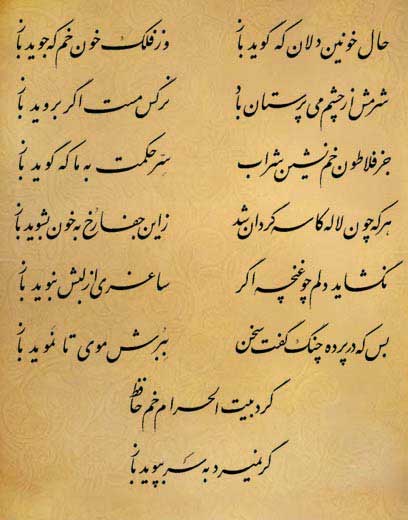 حال خونین دلان که گوید باز وز فلک خون خم که جوید باز
شرمش از چشم می پرستان باد نرگس مست اگر بروید باز
جز فلاطون خم نشین شراب سر حکمت به ما که گوید باز
هر که چون لاله کاسه گردان شد زاین جفا رخ به خون بشوید باز
نگشاید دلم چو غنچه اگر ساغری از لبش نبوید باز
بس که در پرده چنگ گفت سخن ببرش موی تا نموید باز
گرد بیت الحرام خم حافظ
گر نمیرد به سر بپوید باز